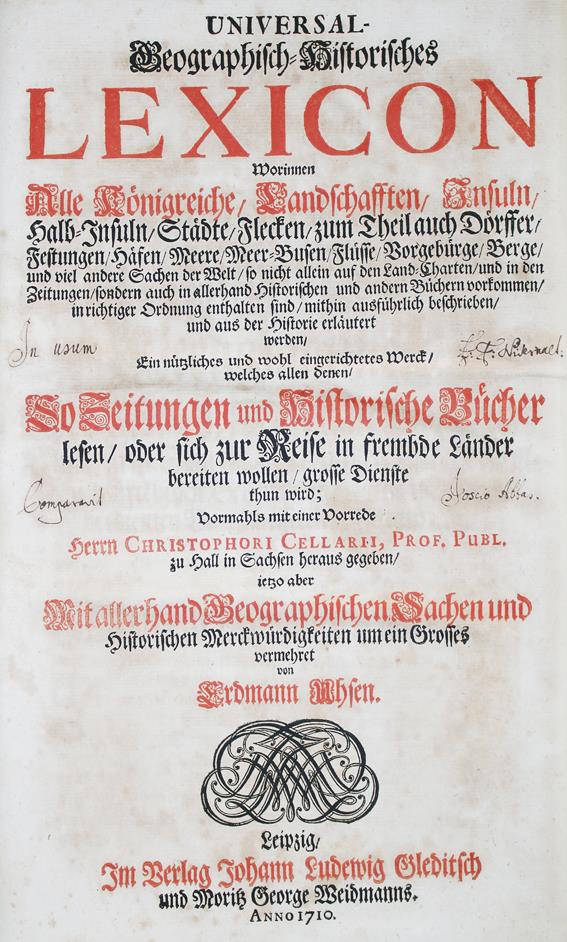 UNIVERSAL-
Geographisch-Historisches
LEXICON
Worinnen
Alle Königreiche/ Landschafften/ Insuln/
Halb-Insuln/ Städte/ Flecken/ zum Theil auch Dörffer/
Festungen/ Häfen/ Meere/ Meer-Busen/ Flüsse/ Vorgebürge/ Berge/
und viel andere Sachen der Welt/ so nicht allein auf den Land-Charten/ und in den
Zeitungen/ sondern auch in allerhand Historischen und andern Büchern vorkommen/
in richtiger Ordnung enthalten sind/ mithin ausführlich beschrieben/
und aus der Historie erläutert
werden/
In usum
Ein nützliches und wohl eingerichtetes Werck/
welches allen denen/
So Zeitungen und Historische Bücher
lesen/ oder sich zur Reise in frembde Länder
bereiten wollen/ grosse Dienste
thun wird;
Comparavit
Vormahls mit einer Vorrede
Herrn CHRISTOPHORI CELLARII, PROF. PUBL.
zu Hall in Sachsen heraus gegeben/
ietzo aber
Mit allerhand Geographischen Sachen und
Historischen Merckwürdigkeiten um ein Grosses
vermehret
von
Erdmann Uhsen.
Leipzig/
Im Verlag Johann Ludewig Gleditsch
und Moritz George Weidmanns.
ANNO 1710.